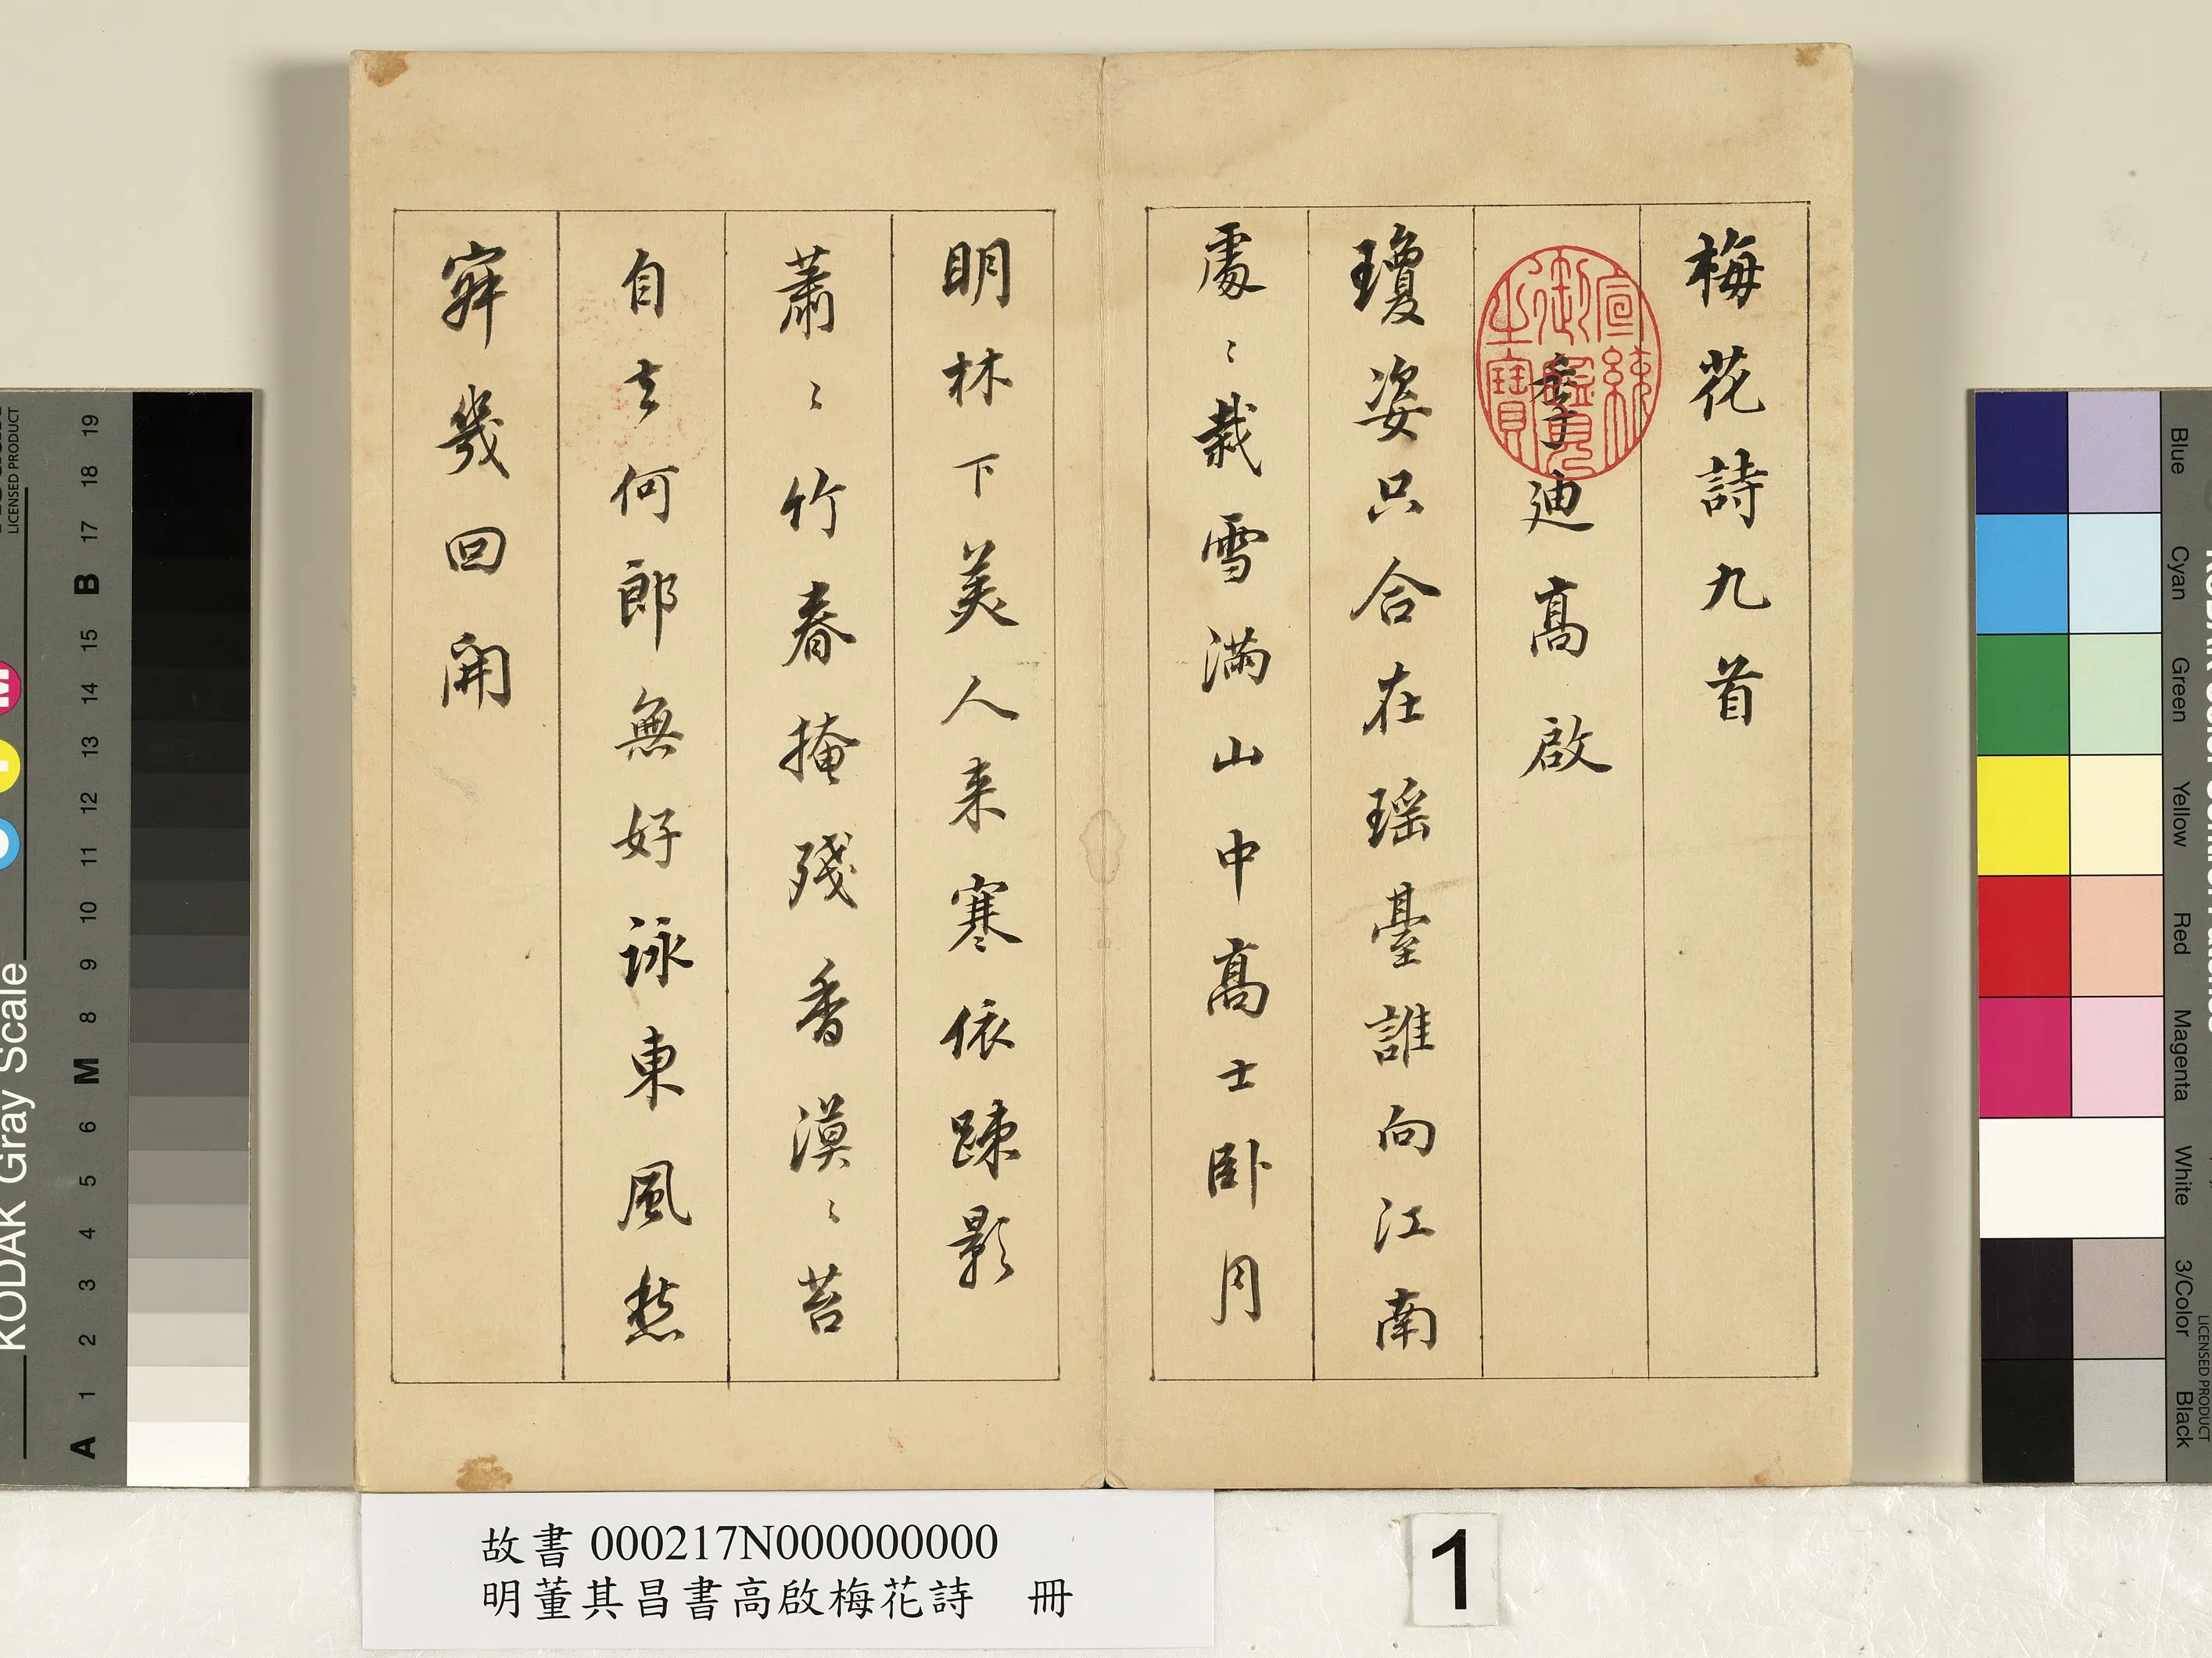 梅花詩九首
季迪高啟
瓊姿只合在瑶臺誰向江南
處〻栽雪滿山中高士卧月
明林下美人来寒依踈影
蕭〻竹春掩殘香漠〻苔
自去何郎無好詠東風愁
寂幾回開
宣統
御覽
之寶
故書 000217N000000000
明董其昌書高啟梅花詩 冊
1
KODAK Gray Scale
LICENSED PRODUCT
A 1 2 3 4 5 6 M 8 9 10 11 12 13 14 15 B 17 18 19
Blue
Cyan
Green
Yellow
Red
Magenta
White
3/Color
Black
LICENSED PRODUCT